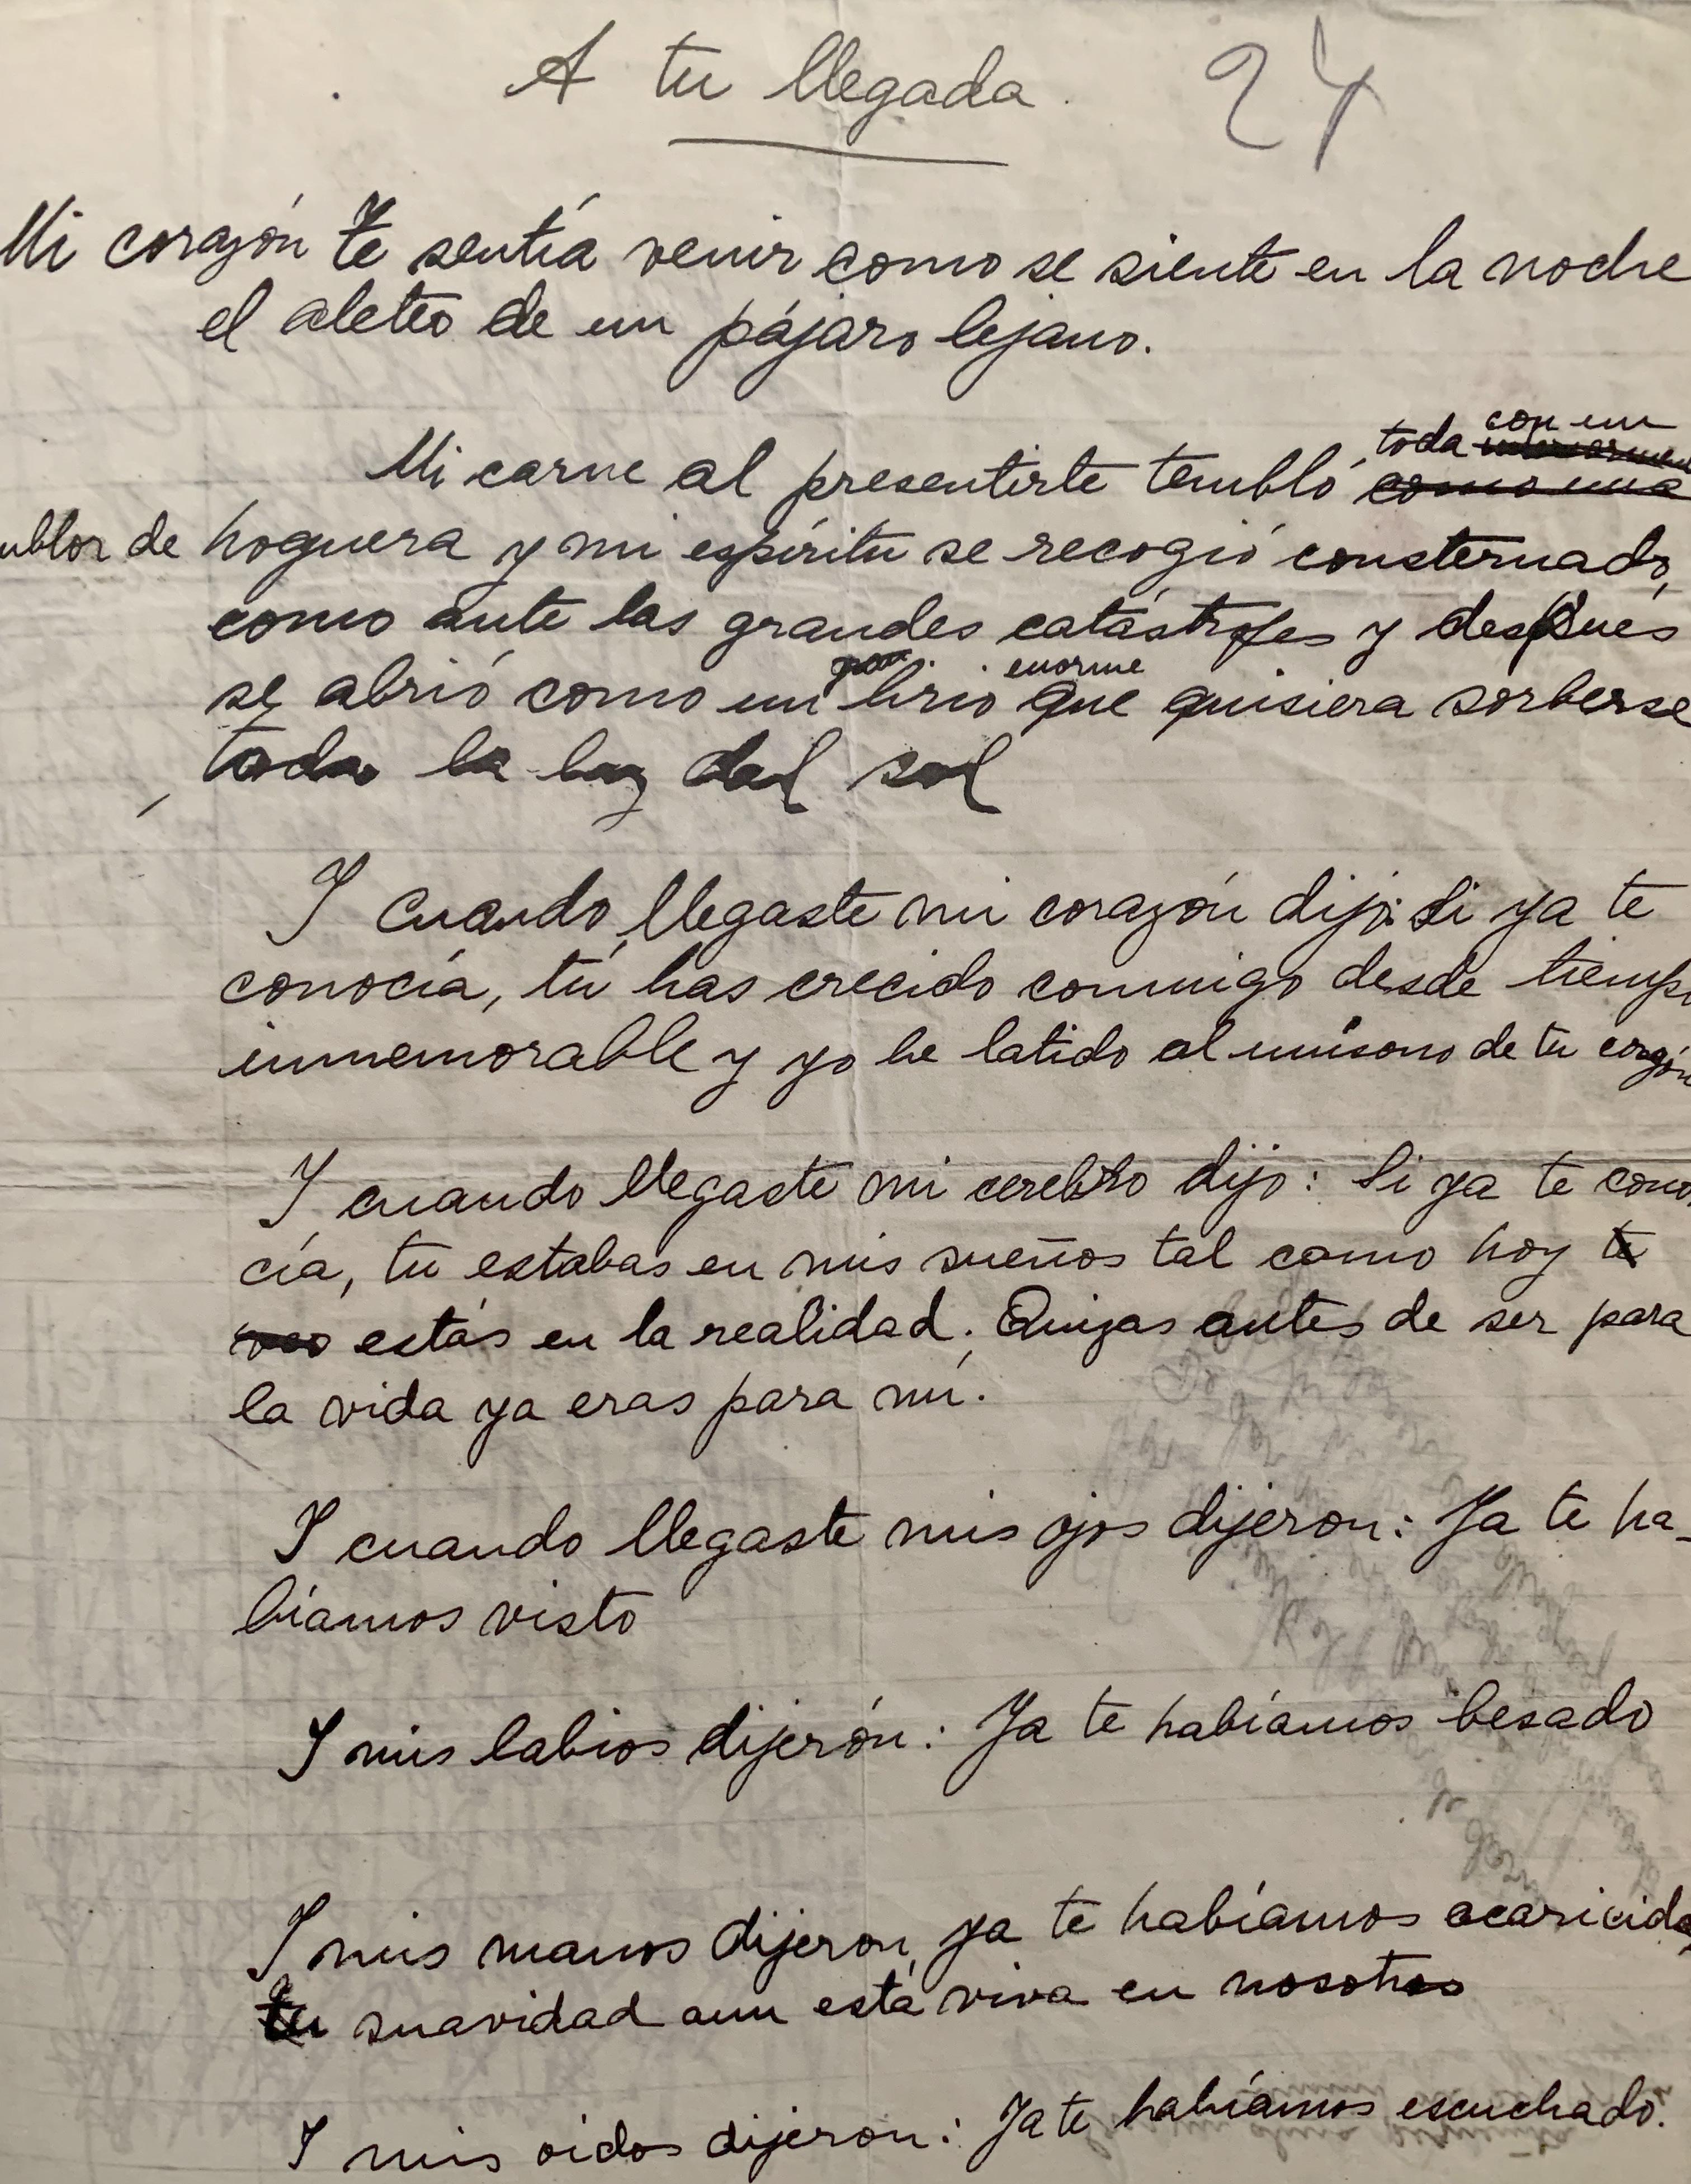 A tu llegada. 24
Mi corazón te sentía venir como se siente en la noche
el aleteo de un pájaro lejano.
con un
toda
Mi carne al presentirte tembló como una
ublor de hoguera y mi espíritu se recogió consternado,
como ante las grandes catástrofes y después
enorme
se abrió como un lirio que quisiera sorberse
toda la luz del sol
Y cuando llegaste mi corazón dijo: Si ya te
conocía, tú has crecido conmigo desde tiempo
inmemorable y yo he latido al unísono de tu corazón
Y cuando llegaste mi cerebro dijo: Si ya te cono
cía, tu estabas en mis sueños tal como hoy te
veo estás en la realidad. Quizas antes de ser para
la vida ya eras para mí.
Y cuando llegaste mis ojos dijeron: Ya te ha-
bíamos visto
Y mis labios dijerón: Ya te habíamos besado
Y mis manos dijeron, ya te habíamos acaricido,
tu suavidad aun está viva en nosotros
Y mis oidos dijeron: Ya te habíamos escuchado.